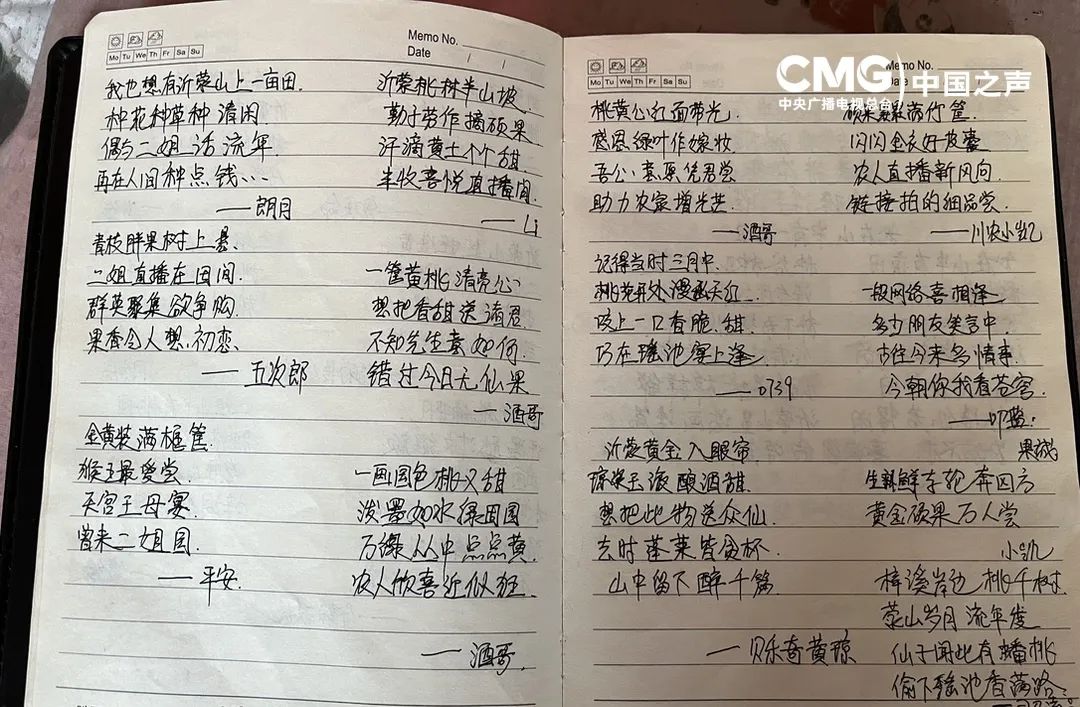 Memo No.
Date
Mo Tu We Th Fr Sa Su
我也想有沂蒙山上一亩田.
种花种草种清闲
偶与二姐话流年
再在人间种点钱…
——朗月
青枝胖果树上悬、
二姐直播在田间.
群英聚集欲争购
果香令人想初恋、
——五次郎
金黄装满框筐.
猴王最爱尝.
天宫王母宴.
曾来二姐园.
——平安.
沂蒙桃林半山坡
勤于劳作摘硕果
汗滴黄土个个甜
丰收喜悦直播间.
——Li
一筐黄桃清亮心
想把香甜送诸君
不知先生意如何
错过今日无仙果
——酒哥
一画国色桃又甜
泼墨如水绿田园
万绿丛中点点黄
农人欣喜近似狂
——酒哥.
CMG 中国之声
中央广播电视总台
Memo No.
Date
Mo Tu We Th Fr Sa Su
桃黄公红面带光
感恩绿叶作嫁妆
助力农家增光芒
——酒哥
记得当时三月中.
咬上一口香脆.甜
巧在瑶池宴上逢
——0739
沂蒙黄金入眼帘
琼浆玉液酿酒甜
想把此物送众仙
去时蓬莱皆贪杯
山中留下醉千篇
——贝乐奇黄琼
闪闪金衣好皮囊
农人直播新风向
链接拍的细品尝
——川农小凯
一段网络喜相逢
多少朋友笑言中
古往今来多情事
今朝你我看苍穹
果城
生鲜车轮奔四方
黄金硕果万人尝
小凯
梓溪岸边桃千树
蒙山岁月流年度
仙子闻此有蟠桃
偷下瑶池香满路